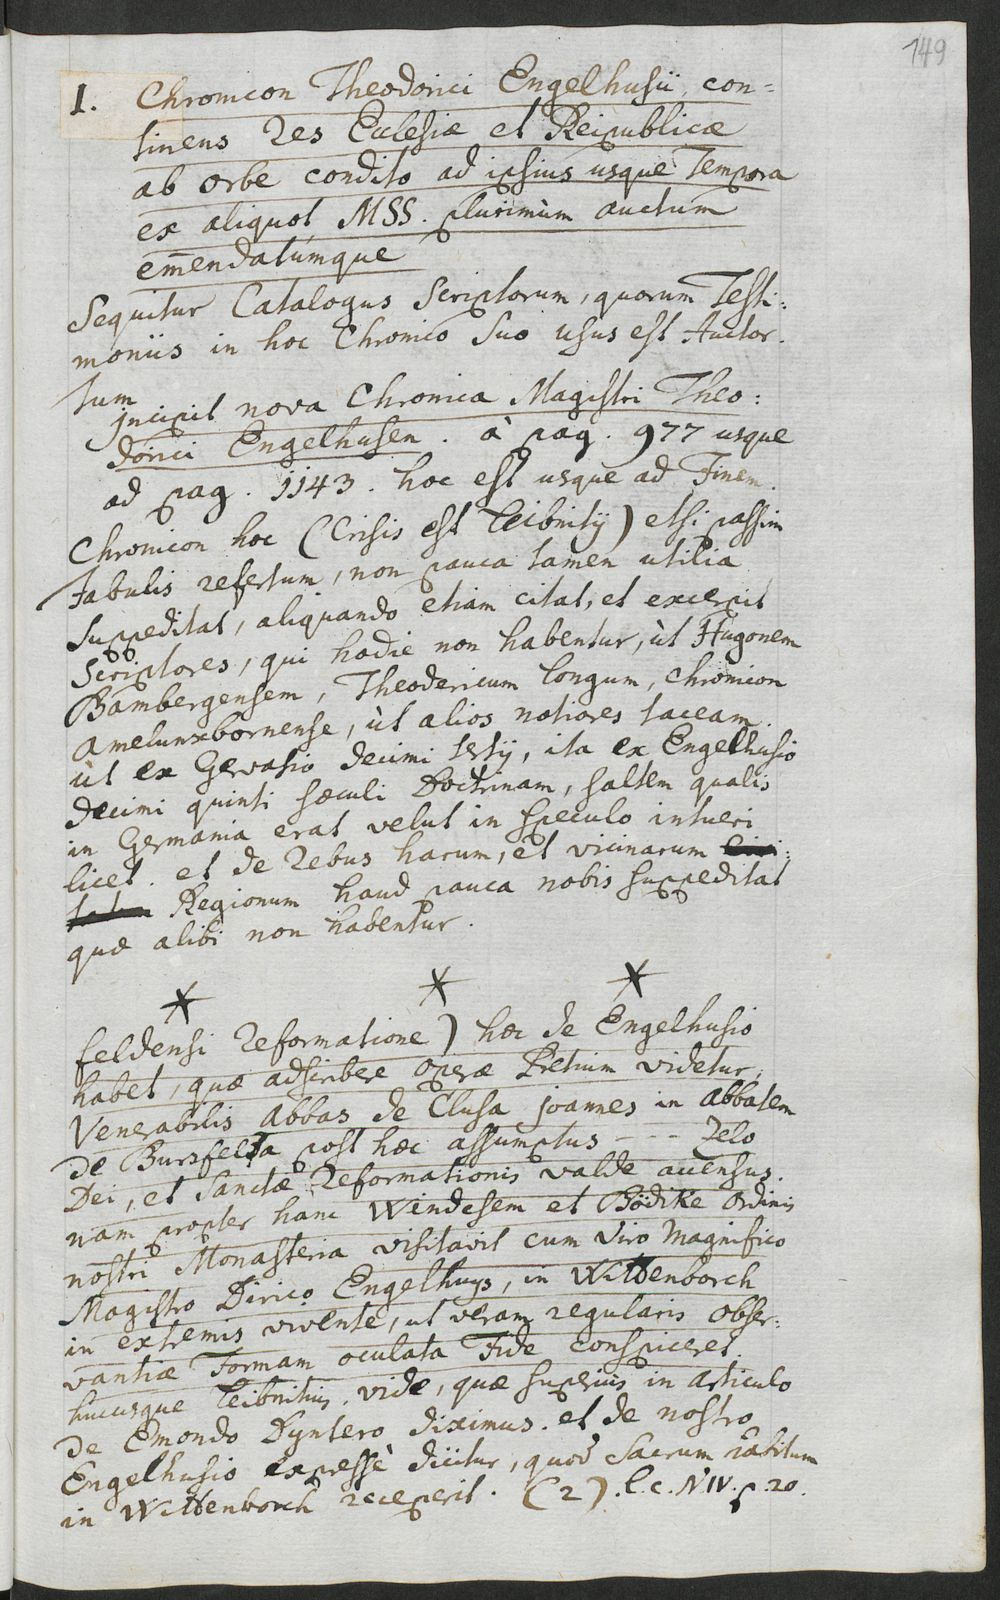 149
1. Chronicon Theodorici Engelhusii, con=
tinens Res Eclesiæ et Reipublicæ
ab orbe condito ad ipsius usque Tempora
ex aliquot MSS. plurimùm auctum
em̄endatúmque
Sequitur Catalogus Scriptorum, quorum Testi:
moniis in hoc Chronico suo usus est Auctor.
tum
incipit nova Chronica Magistri Theo:
dorici Engelhusen. à pag. 977 usque
ad pag. 1143. hoc est usque ad Finem.
Chronicon hoc (Crisis est Leibnitij) etsi passim
Fabulis refertum, non pauca tamen utilia
suppeditat, aliquando etiam citat, et excerpit
Scriptores, qui hodie non habentur, ùt Hugonem
Bambergensem, Theodericum Longum, Chronicon
Amelunxbornense, ùt alios notiores taceam.
ùt ex Gervasio decimi tertij, ita ex Engelhusio
decimi quinti sæculi Doctrinam, saltem qualis
in Germania erat velut in speculo intueri
licet. et de Rebus harum, et vicinarum
Regionum haud pauca nobis suppeditat
quæ alibi non habentur.
* * *
feldensi Reformatione) hæc de Engelhusio
habet, quæ adscribere operæ Pretium videtur,
Venerabilis Abbas de Clusa Joannes in Abbatem
de Bursfelda post hæc assumptus --- Zelo
Dei, et Sanctæ Reformationis valde accensus.
nam propter hanc Windesem et Bödike Ordinis
nostri Monasteria visitavit cum Viro Magnifico
Magistro Dirico Engelhuys, in Wittenborch
in extremis vivente, ut veram regularis Obser:
vantiæ Formam oculata Fide conspiceret.
hucusque Leibnitius. vide, quæ superius in articulo
de Emondo Dyntero diximus. et de nostro
Engelhusio expressè dicitur, quod Sacrum habitum
in Wittenborch receperit. (2). l.c. N IV. p. 20.